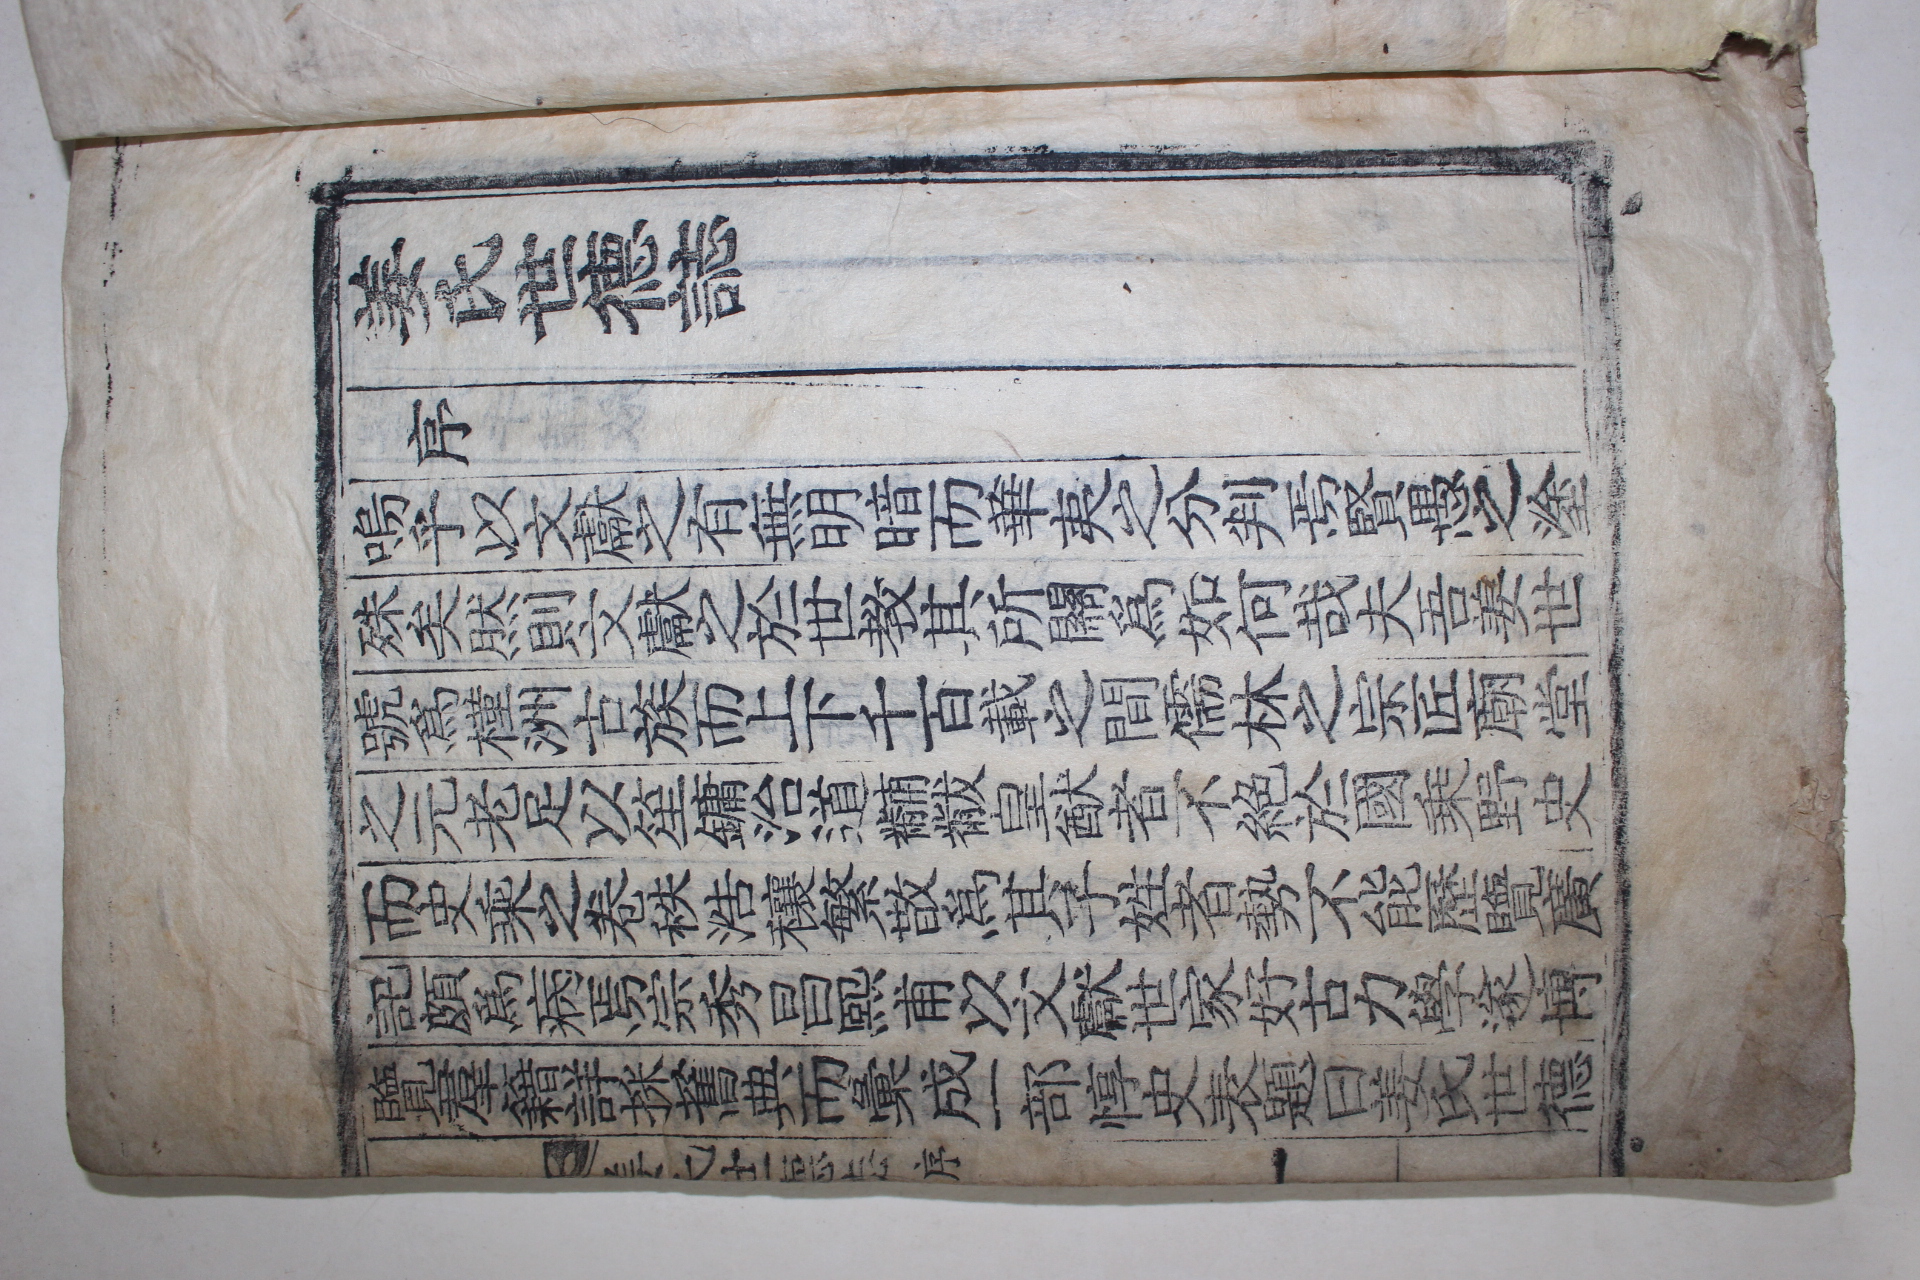 姜氏世德誌
序
嗚乎以文獻之有無明暗而華夷之分判焉賢愚之塗
殊矣然則文獻之於世敎其所關爲如何哉夫吾姜世
號爲檀洲古族而上下千百載之間儒林之宗匠廟堂
之元老足以笙鏞治道黼黻皇猷者不絶於國乘野史
而史乘之卷秩浩穰繁散爲其子姓者勢不能歷覽廣
記頗爲病焉宗秀昌熙甫以文獻世家好古力學淡博
覽羣籍誇採舊典而彙成一部惇史表題曰姜氏世德
姜氏世德誌 序